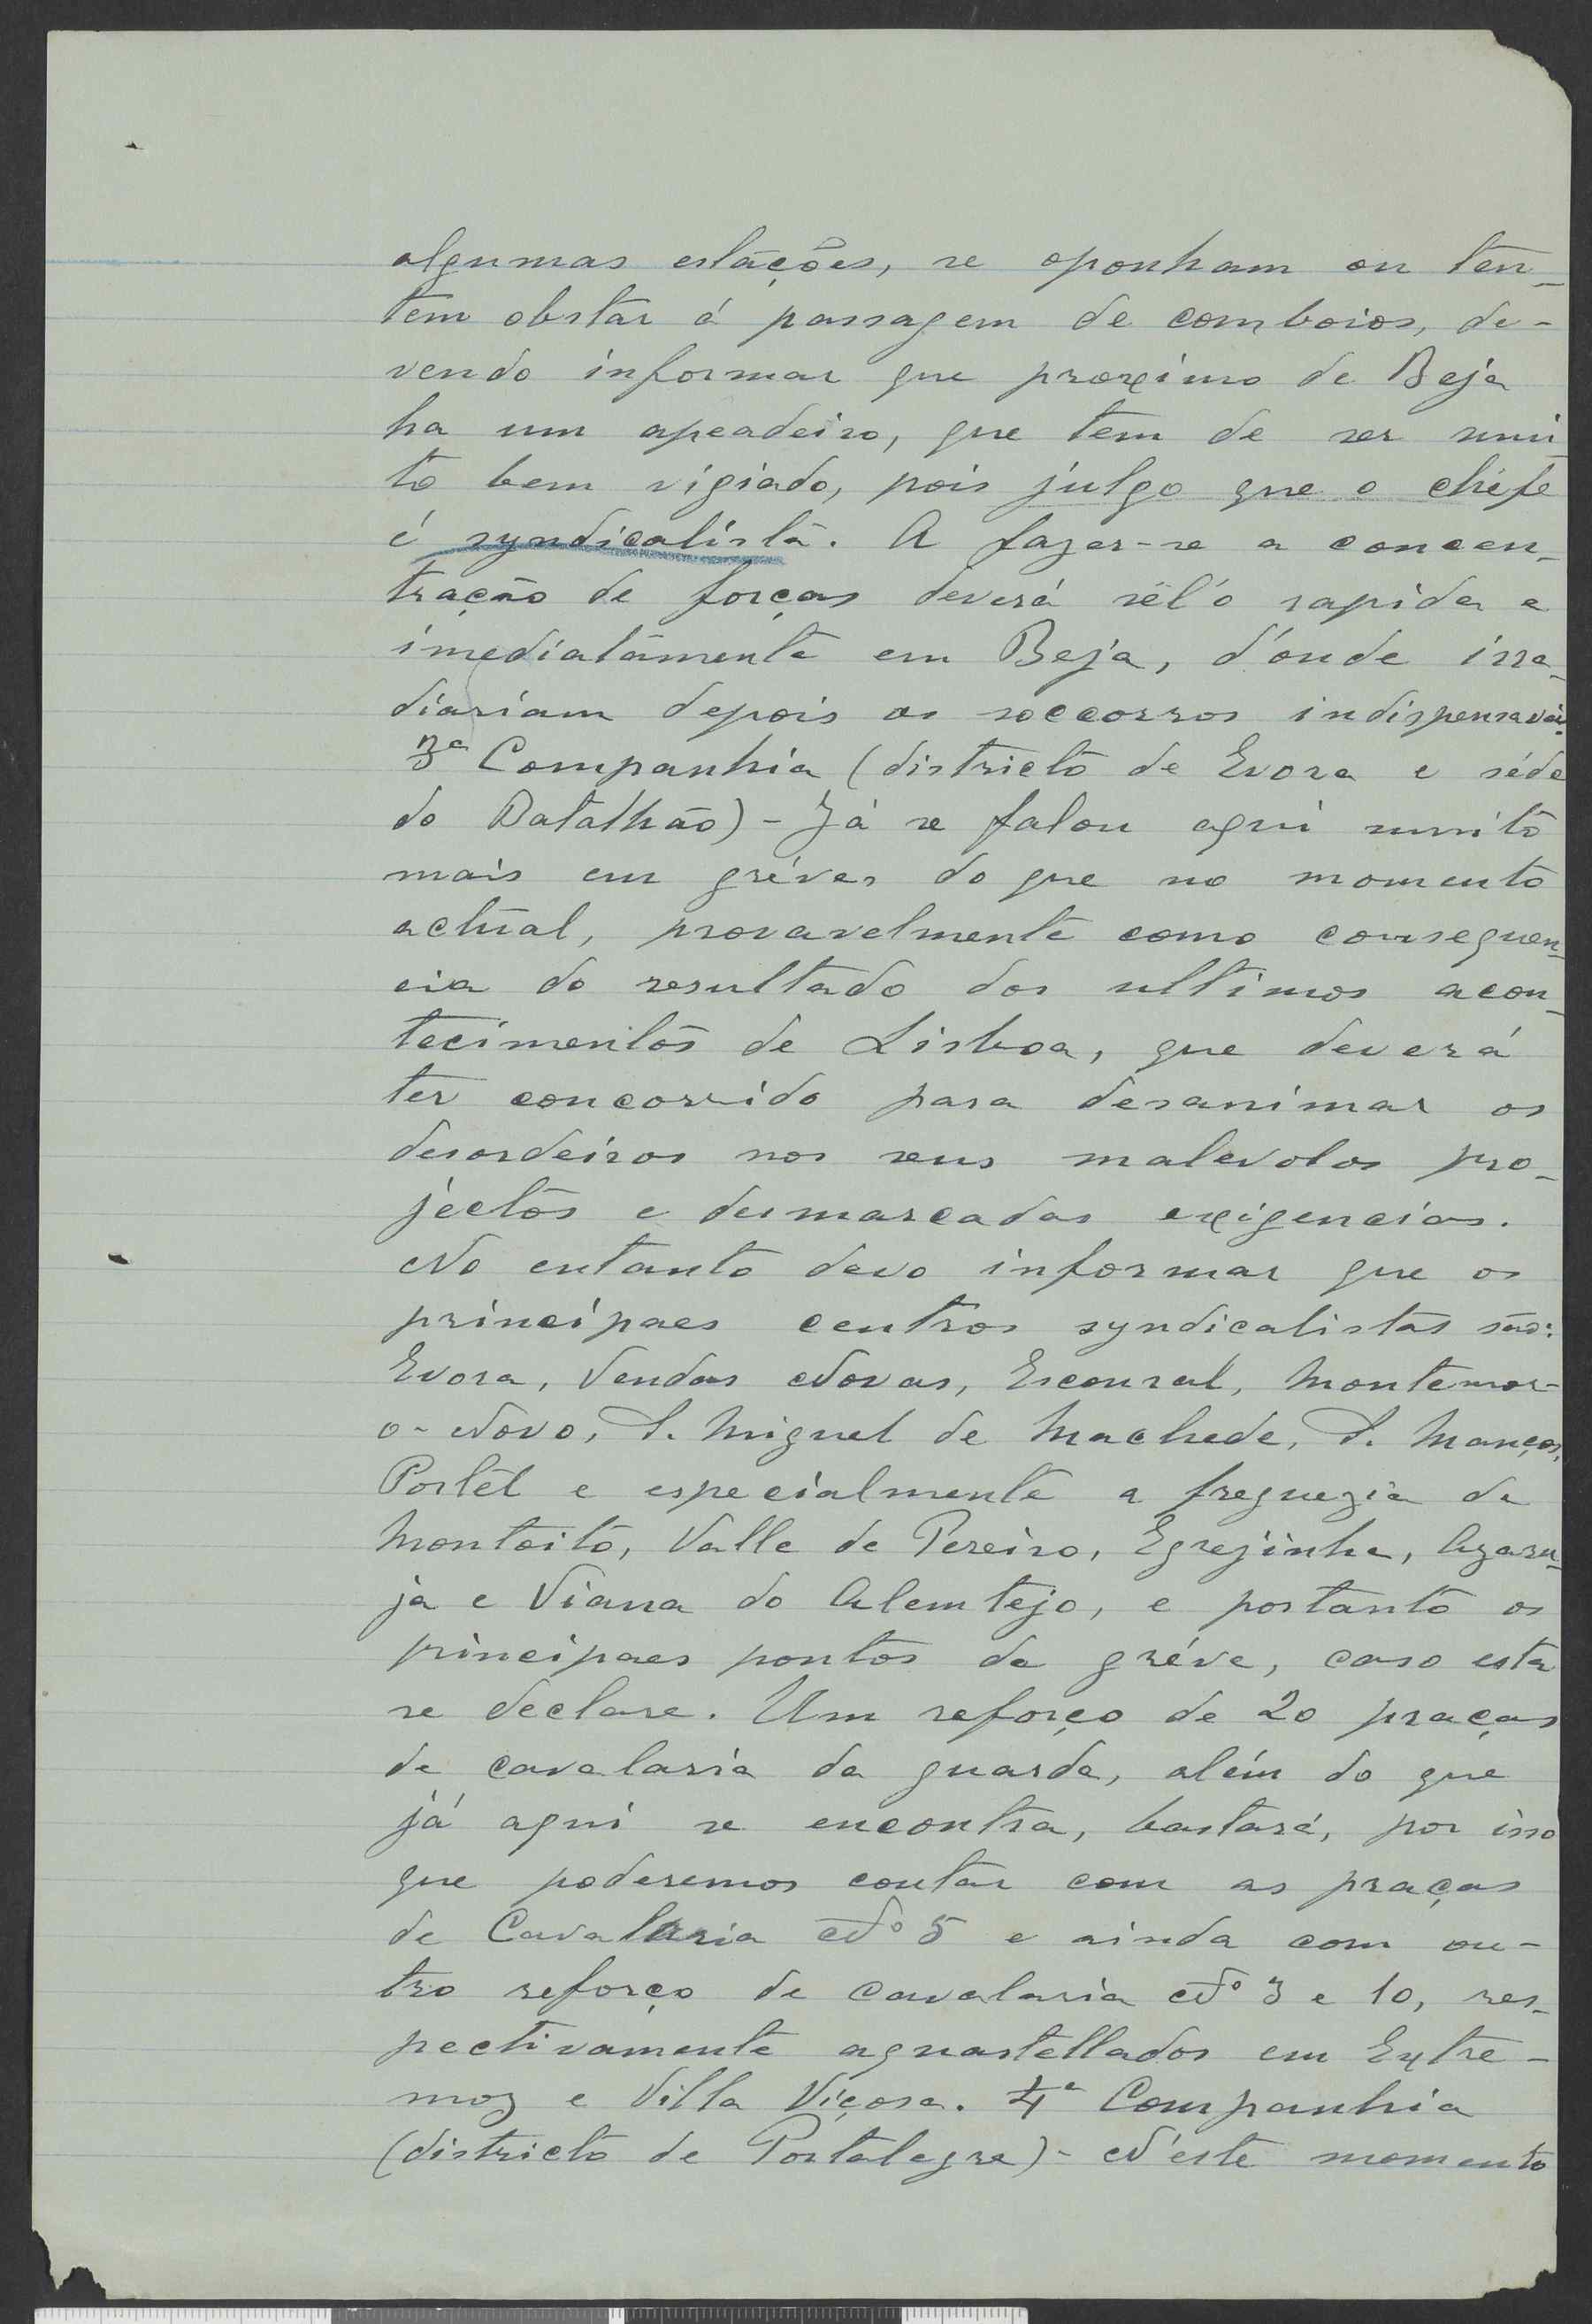 algumas estações, se oponham ou ten-
tem obstar á passagem de comboios, de-
vendo informar que proximo de Beja
ha um apeadeiro, que tem de ser mui-
to bem vigiado, pois julgo que o chefe
é syndicalista. A fazer-se a concen-
tração de forças deverá sêl'o rapida e
imediatamente em Beja, d'onde irra-
diariam depois os soccorros indispensaveis.
3ª Companhia (districto de Evora e séde
do Batalhão) - Já se falou aqui muito
mais em gréves do que no momento
actual, provavelmente como consequen-
cia do resultado dos ultimos acon-
tecimentos de Lisboa, que deverá
ter concorrido para desanimar os
desordeiros nos seus malevolos pro-
jectos e desmarcadas exigencias.
No entanto devo informar que os
principaes centros syndicalistas são:
Evora, Vendas Novas, Escoural, Montemor-
o-Novo, S. Miguel de Machede, S. Manços,
Portél e especialmente a freguezia de
Montoito, Valle de Pereiro, Egrejinha, Azaru-
ja e Viana do Alemtejo, e portanto os
principaes pontos da gréve, caso esta
se declare. Um reforço de 20 praças
de cavalaria da guarda, além do que
já aqui se encontra, bastará, por isso
que poderemos contar com as praças
de Cavalaria Nº 5 e ainda com ou-
tro reforço de cavalaria Nº 3 e 10, res-
pectivamente aquartellados em Extre-
moz e Villa Viçosa. 4ª Companhia
(districto de Portalegre) - N'este momento